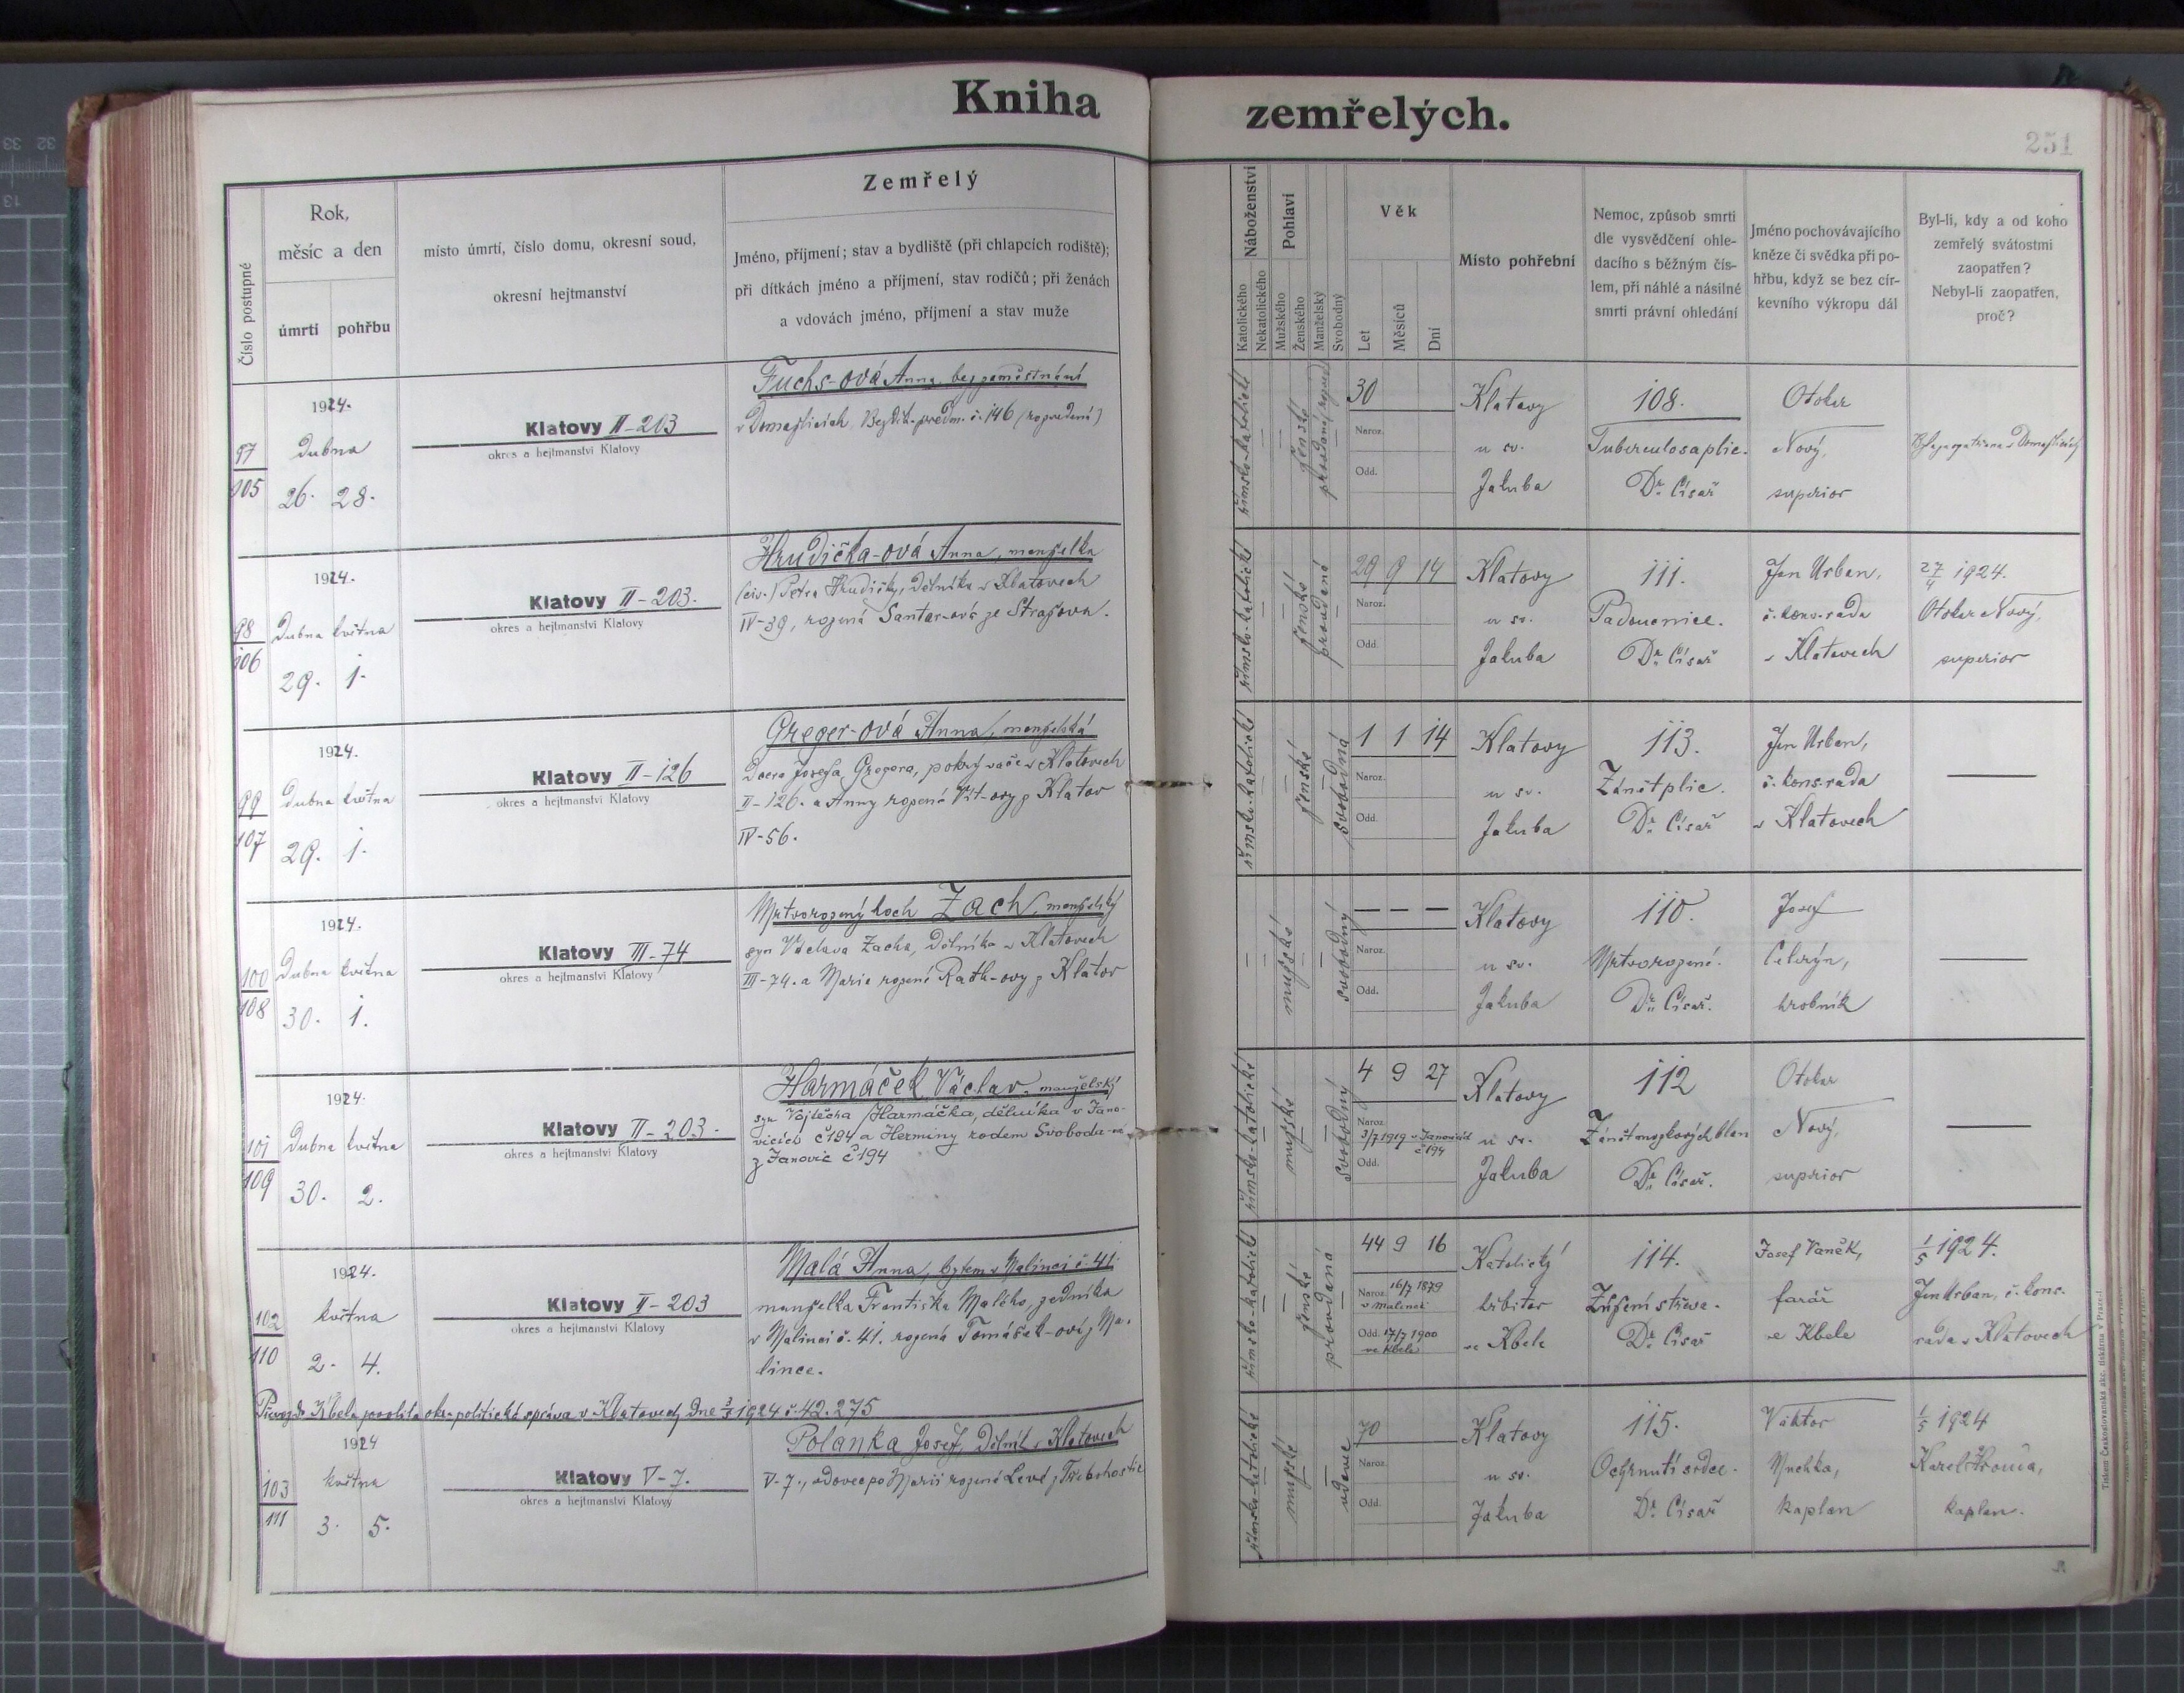 Kniha zemřelých.
251
Číslo postupné
Rok,
měsíc a den
úmrtí pohřbu
místo úmrtí, číslo domu, okresní soud,
okresní hejtmanství
Zemřelý
Jméno, příjmení; stav a bydliště (při chlapcích rodiště);
při dítkách jméno a příjmení, stav rodičů; při ženách
a vdovách jméno, příjmení a stav muže
Náboženství
Katolického
Nekatolického
Pohlaví
Mužského
Ženského
Manželský
Svobodný
Věk
Let
Měsíců
Dní
Místo pohřební
Nemoc, způsob smrti
dle vysvědčení ohle-
dacího s běžným čís-
lem, při náhlé a násilné
smrti právní ohledání
Jméno pochovávajícího
kněze či svědka při po-
hřbu, když se bez cír-
kevního výkropu dál
Byl-li, kdy a od koho
zemřelý svátostmi
zaopatřen?
Nebyl-li zaopatřen,
proč?
97
105
1924.
dubna
26. 28.
Klatovy II-203
okres a hejtmanství Klatovy
Fuchs-ová Anna, bez zaměstnání
v Domažlicích, Bezděk. předm. č. 146 (rozvedená)
římsko-katolické
ženské
provdaná
30
Naroz.
Odd.
Klatovy
u sv.
Jakuba
108.
Tuberculosa plic.
Dr. Císař
Otokar
Nový,
superior
98
106
1924.
dubna května
29. 1.
Klatovy II-203.
okres a hejtmanství Klatovy
Hrudička-ová Anna, manželka
(civ.) Petra Hrudičky, dělníka v Klatovech
IV-39, rozená Santar-ová ze Strašova.
římsko-katolické
ženské
provdaná
29 9 14
Naroz.
Odd.
Klatovy
u sv.
Jakuba
111.
Padoucnice.
Dr. Císař
Jan Urban,
č. kons. rada
v Klatovech
27/4 1924.
Otokar Nový,
superior
99
107
1924.
dubna května
29. 1.
Klatovy II-126
okres a hejtmanství Klatovy
Greger-ová Anna, manželská
dcera Josefa Gregora, pokrývače v Klatovech
II-126. a Anny rozené Vít-ovy z Klatov
IV-56.
římsko-katolické
ženské
svobodná
1 1 14
Naroz.
Odd.
Klatovy
u sv.
Jakuba
113.
Zánět plic.
Dr. Císař
Jan Urban,
č. kons. rada
v Klatovech
100
108
1924.
dubna května
30. 1.
Klatovy III-74
okres a hejtmanství Klatovy
Mrtvorozený hoch Zach, manželský
syn Václava Zacha, dělníka v Klatovech
III-74. a Marie rozené Rath-ovy z Klatov
mužské
svobodný
— — —
Naroz.
Odd.
Klatovy
u sv.
Jakuba
110.
Mrtvorozené.
Dr. Císař.
Josef
Celerýn,
hrobník
101
109
1924.
dubna května
30. 2.
Klatovy II-203.
okres a hejtmanství Klatovy
Harmáček Václav, manželský
syn Vojtěcha Harmáčka, dělníka v Jano-
vicích č 194 a Herminy rodem Svoboda-ové
z Janovic č 194
římsko-katolické
mužské
svobodný
4 9 27
Naroz.
3/7 1919 v Janovicích
č 194
Odd.
Klatovy
u sv.
Jakuba
112
Zánět mozkových blan
Dr. Císař.
Otokar
Nový,
superior
102
110
1924.
května
2. 4.
Klatovy II-203
okres a hejtmanství Klatovy
Malá Anna, bytem v Malinci č. 41.
manželka Františka Malého, zedníka
v Malinci č. 41. rozená Tomášek-ová z Ma-
lince.
římsko-katolické
ženské
provdaná
44 9 16
Naroz. 16/7 1879
v Malinci
Odd. 17/7 1900
ve Kbele
Katolický
hřbitov
ve Kbele
114.
Zúžení střeva.
Dr. Císař
Josef Vaněk,
farář
ve Kbele
1/5 1924.
Jan Urban, č. kons.
rada v Klatovech
Převoz do Kbela povolila okr. politická správa v Klatovech dne 3/5 1924 č. 42.275
103
111
1924
května
3. 5.
Klatovy V-7.
okres a hejtmanství Klatovy
Polanka Josef, dělník v Klatovech
V-7., vdovec po Marii rozené Levé z Třebohostic
římsko-katolické
mužské
vdovec
70
Naroz.
Odd.
Klatovy
u sv.
Jakuba
115.
Ochrnutí srdce.
Dr. Císař
Viktor
Muchka,
kaplan
1/5 1924
kaplan.